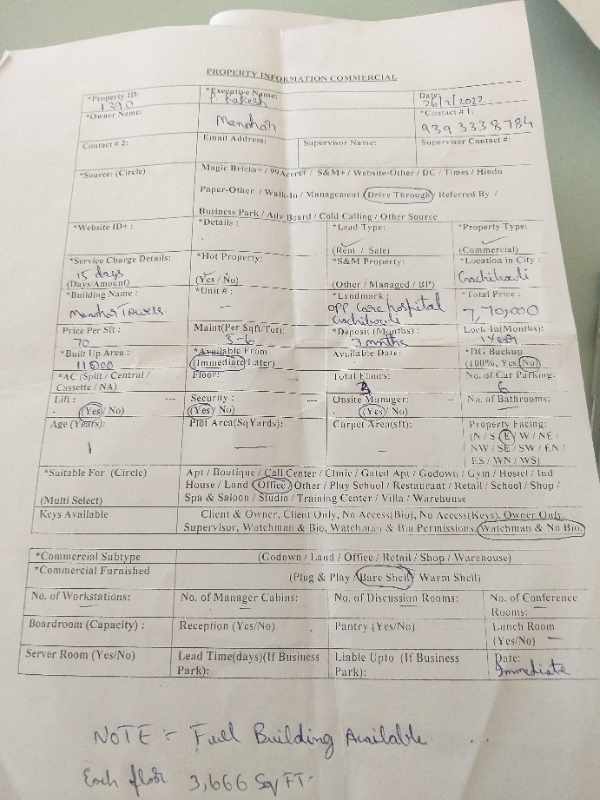 PROPERTY INFORMATION COMMERCIAL
*Property ID: 1390 *Executive Name: P. Rakesh Date: 26/2/2022
*Owner Name: Manohar *Contact # 1: 939 3338784
Contact # 2: Email Address: Supervisor Name: Supervisor Contact #:
*Source: (Circle) Magic Bricks+ / 99Acres+ / S&M+ / Website-Other / DC / Times / Hindu
Paper-Other / Walk-In / Management / Drive Through / Referred By /
Business Park / Adv Board / Cold Calling / Other Source
*Website ID+ : *Details : *Lead Type: (Rent / Sale) *Property Type: (Commercial)
*Service Charge Details: 15 days (Days Amount) *Hot Property: (Yes / No) *S&M Property: (Other / Managed / BP) *Location in City : Gachibouli
*Building Name : Manohar Towers *Unit # : - *Landmark : opp Care hospital Gachibouli *Total Price : 7,70,000
Price Per Sft : 70 Maint(Per Sqft/Tot): 5-6 *Deposit (Months) : 3 months Lock In(Months): 1 year
*Built Up Area : 11000 *Available From (Immediate / Later) Available Date: *DG Backup (100%, Yes, No)
*AC (Split / Central / Cassette / NA) Floor: Total Floors: 3 No. of Car Parking: 6
Lift : (Yes / No) Security : (Yes / No) Onsite Manager: (Yes / No) No. of Bathrooms: —
Age (Years): 1 Plot Area(SqYards): — Carpet Area(sft): — Property Facing: (N / S / E / W / NE / NW / SE / SW / EN / ES / WN / WS)
*Suitable For (Circle) (Multi Select) Apt / Boutique / Call Center / Clinic / Gated Apt / Godown / Gym / Hostel / Ind
House / Land / Office / Other / Play School / Restaurant / Retail / School / Shop /
Spa & Saloon / Studio / Training Center / Villa / Warehouse
Keys Available Client & Owner, Client Only, No Access(Bio), No Access(Keys), Owner Only,
Supervisor, Watchman & Bio, Watchman & Bio Permissions, Watchman & No Bio.
*Commercial Subtype (Godown / Land / Office / Retail / Shop / Warehouse)
*Commercial Furnished (Plug & Play / Bare Shell / Warm Shell)
No. of Workstations: — No. of Manager Cabins: — No. of Discussion Rooms: — No. of Conference Rooms: —
Boardroom (Capacity) : Reception (Yes/No) Pantry (Yes/No) Lunch Room (Yes/No) —
Server Room (Yes/No) Lead Time(days)(If Business Park): Liable Upto (If Business Park): Date: Immediate
NOTE :- Full Building Available ...
Each floor 3,666 Sq FT.